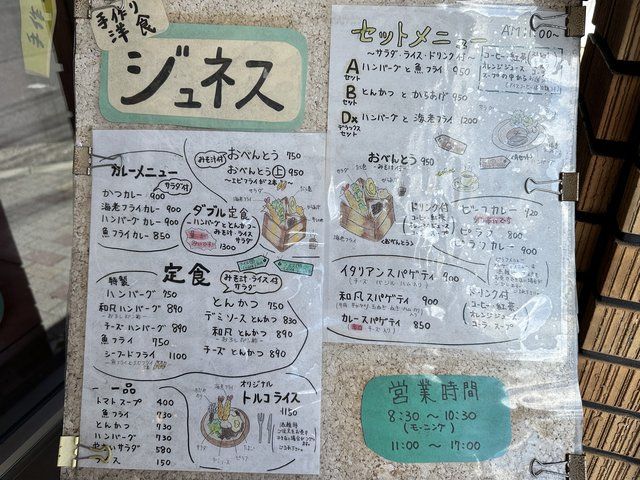 手作り
洋食
ジュネス
おべんとう 750
みそ汁付
おべんとう(上) 950
〜エビフライが2本〜
カレーメニュー
サラダ付
かつカレー 900
海老フライカレー 900
ハンバーグカレー 900
魚フライカレー 850
ダブル定食
ハンバーグととんかつ
みそ汁・ライス
サラダ
1300
定食
みそ汁・ライス付
サラダ
特製
ハンバーグ 750
和風ハンバーグ 890
チーズハンバーグ 890
魚フライ 750
シーフードフライ 1100
とんかつ 750
デミソースとんかつ 830
和風とんかつ 890
チーズとんかつ 890
一品
トマトスープ 400
魚フライ 730
とんかつ 730
ハンバーグ 730
やさいサラダ 580
ライス 150
オリジナル
トルコライス
1150
セットメニュー
AM11:00〜
〜サラダ・ライス・ドリンク付〜
Aセット ハンバーグと魚フライ 950
Bセット とんかつとからあげ 950
Dxデラックスセット ハンバーグと海老フライ 1200
コーヒー・紅茶
オレンジジュース
スープの中から1品
おべんとう 950
みそ汁付
ドリンク付
コーヒー・紅茶
オレンジジュース
コーラ・スープ
《おべんとう》
ビーフカレー 920
ピラフ 800
900
イタリアンスパゲティ 900
和風スパゲティ 900
カレースパゲティ 850
ドリンク付
コーヒー・紅茶
オレンジジュース
コーラ・スープ
営業時間
8:30 〜 10:30
(モーニング)
11:00 〜 17:00